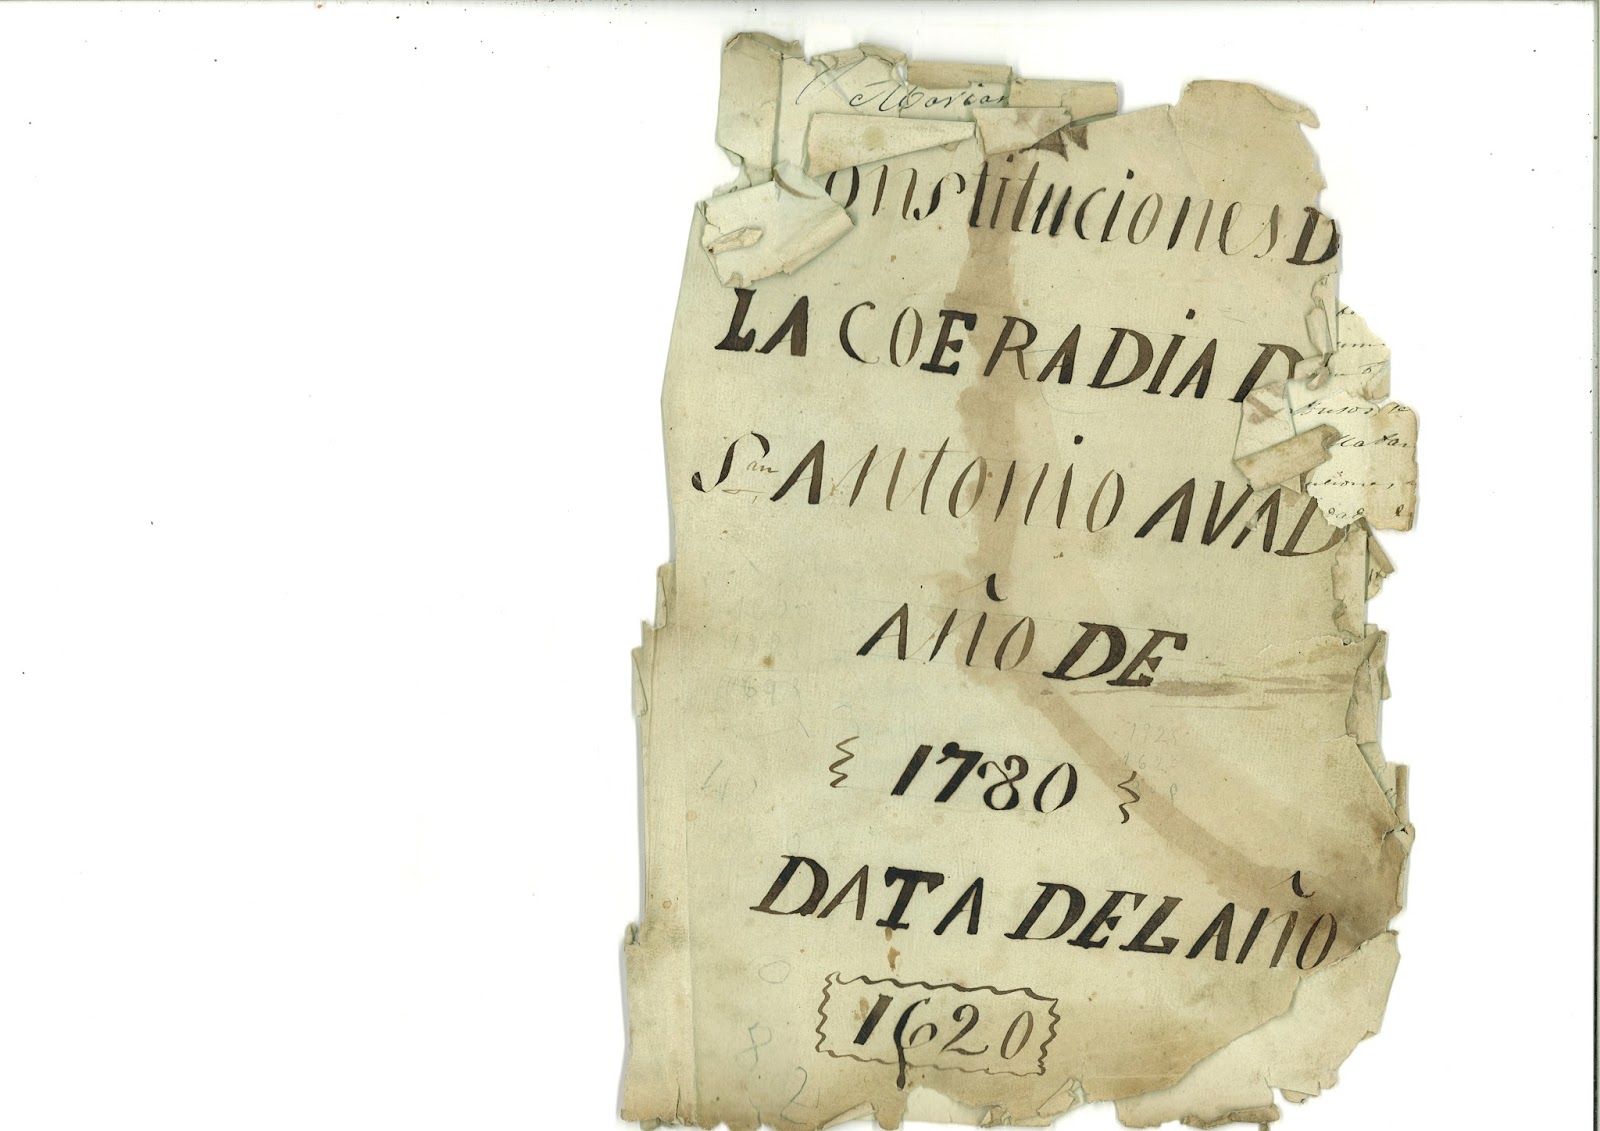 Marian
onstituciones D
LA COFRADIA D
Sn ANtonio AVAD
AÑO DE
1780
DATA DEL AÑO
1620